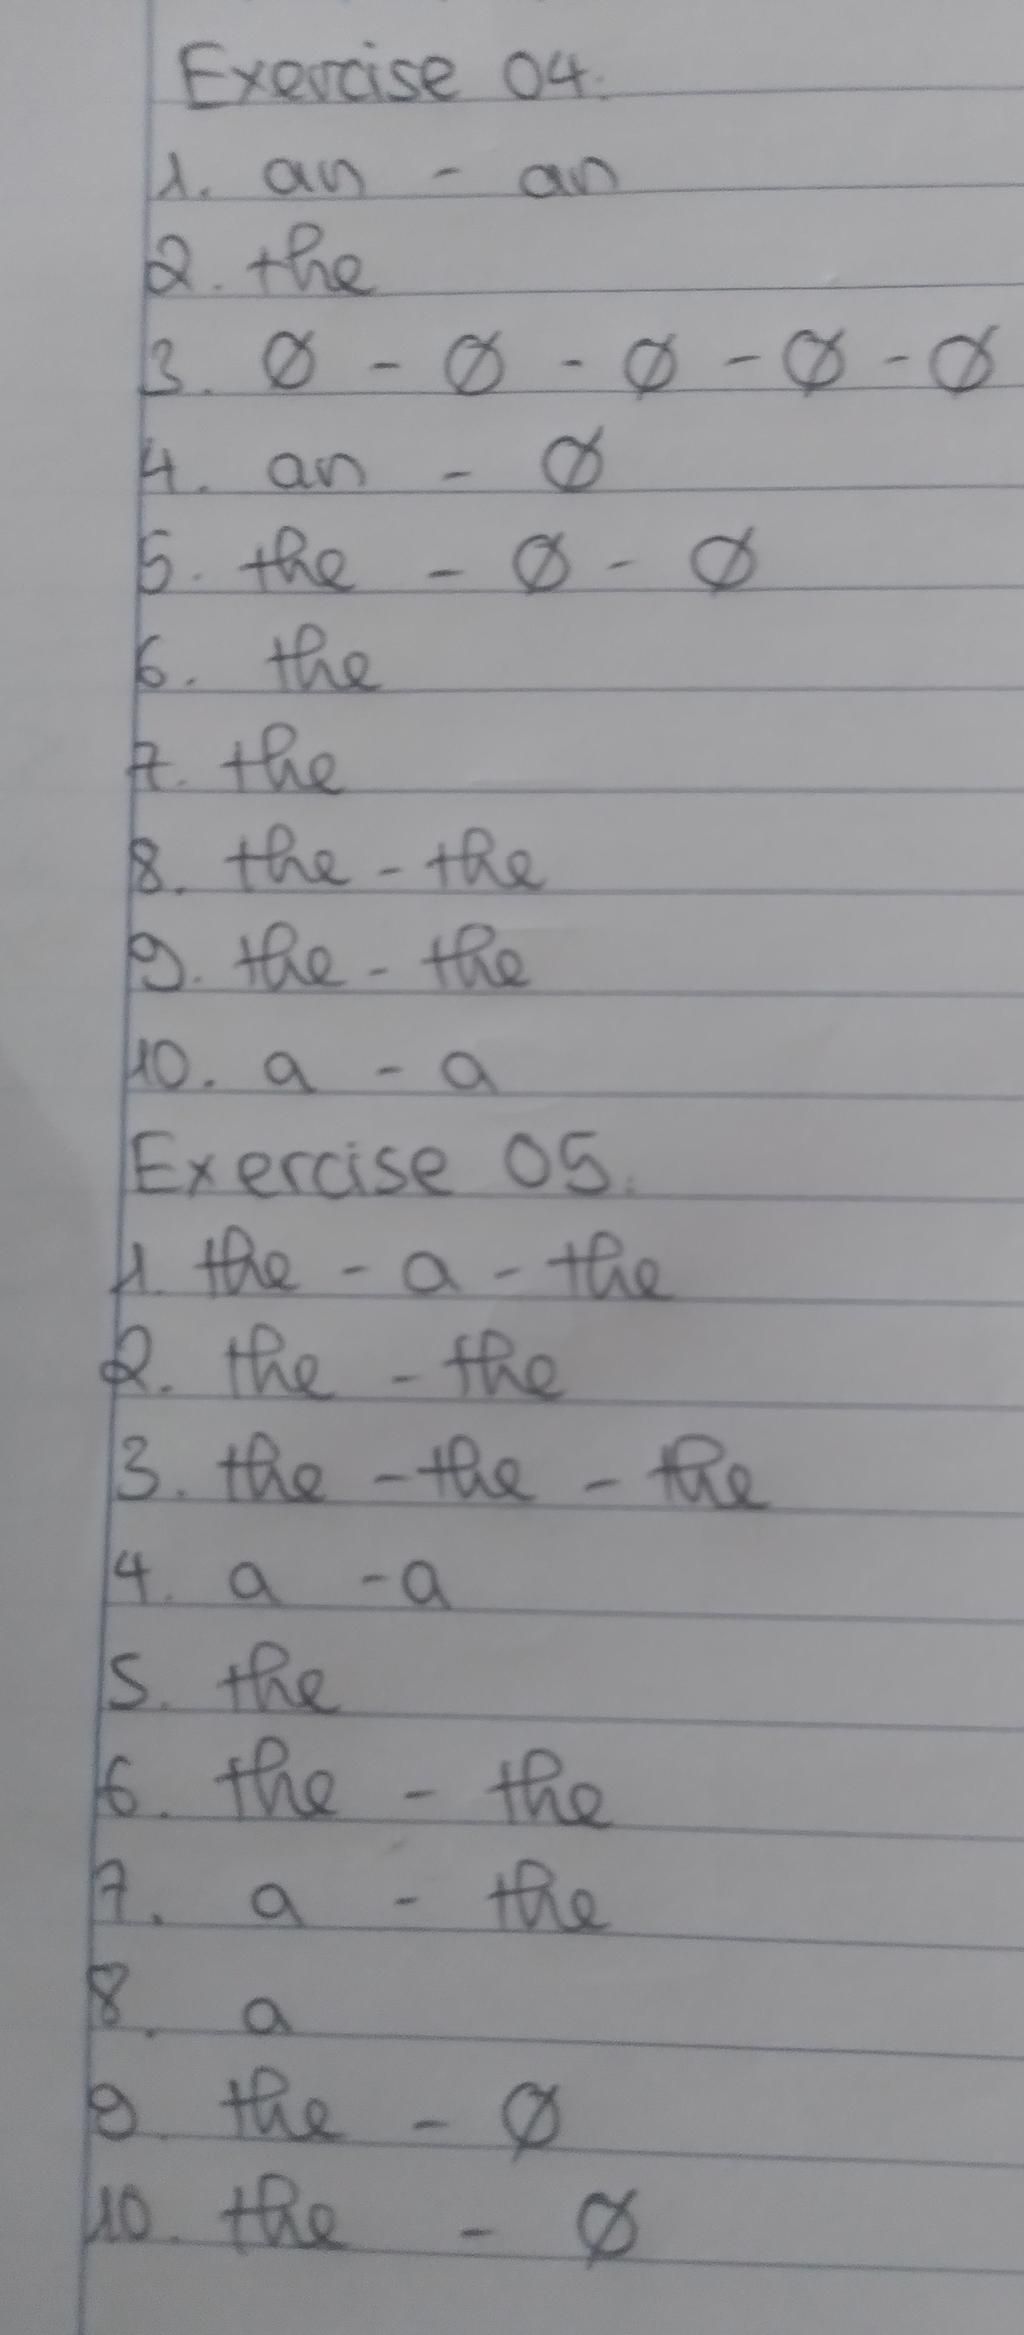 Exercise 04.
1. an - an
2. the
3. Ø - Ø - Ø - Ø - Ø
4. an - Ø
5. the - Ø - Ø
6. the
7. the
8. the - the
9. the - the
10. a - a
Exercise 05.
1. the - a - the
2. the - the
3. the - the - the
4. a - a
5. the
6. the - the
7. a - the
8. a
9. the - Ø
10. the - Ø